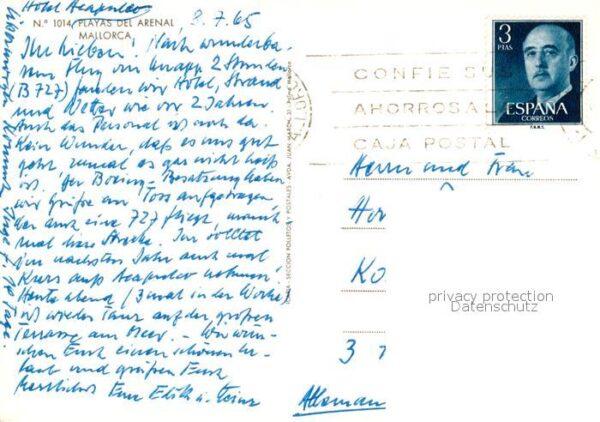 Hotel Acapulco
8.7.65
N.º 1014, PLAYAS DEL ARENAL
MALLORCA
Ihr Lieben! Nach wunderba-
rem Flug von knapp 2 Stunden
(B 727) fanden wir Hotel, Strand
und Wetter wie vor 2 Jahren.
Auch das Personal ist noch da.
Kein Wunder, daß es uns gut
geht zumal es gar nicht heiß
ist. Der Boeing-Besatzung haben
wir Grüße an Toss aufgetragen,
der auch eine 727 fliegt, manch-
mal diese Strecke. Ihr solltet
im nächsten Jahr auch mal
Kurs aufs Acapulco nehmen!
Heute abend (3 mal in der Woche)
ist wieder Tanz auf der großen
Terrasse am Meer. – Wir wün-
schen Euch einen schönen Ur-
laub und grüßen Euch
herzlichst Eure Edith u. Heinz
Tage.
3
PTAS
ESPAÑA
CORREOS
CONFIE SUS
AHORROS A LA
CAJA POSTAL
Herrn und Frau
Her
Ko
3
Aleman
privacy protection
Datenschutz